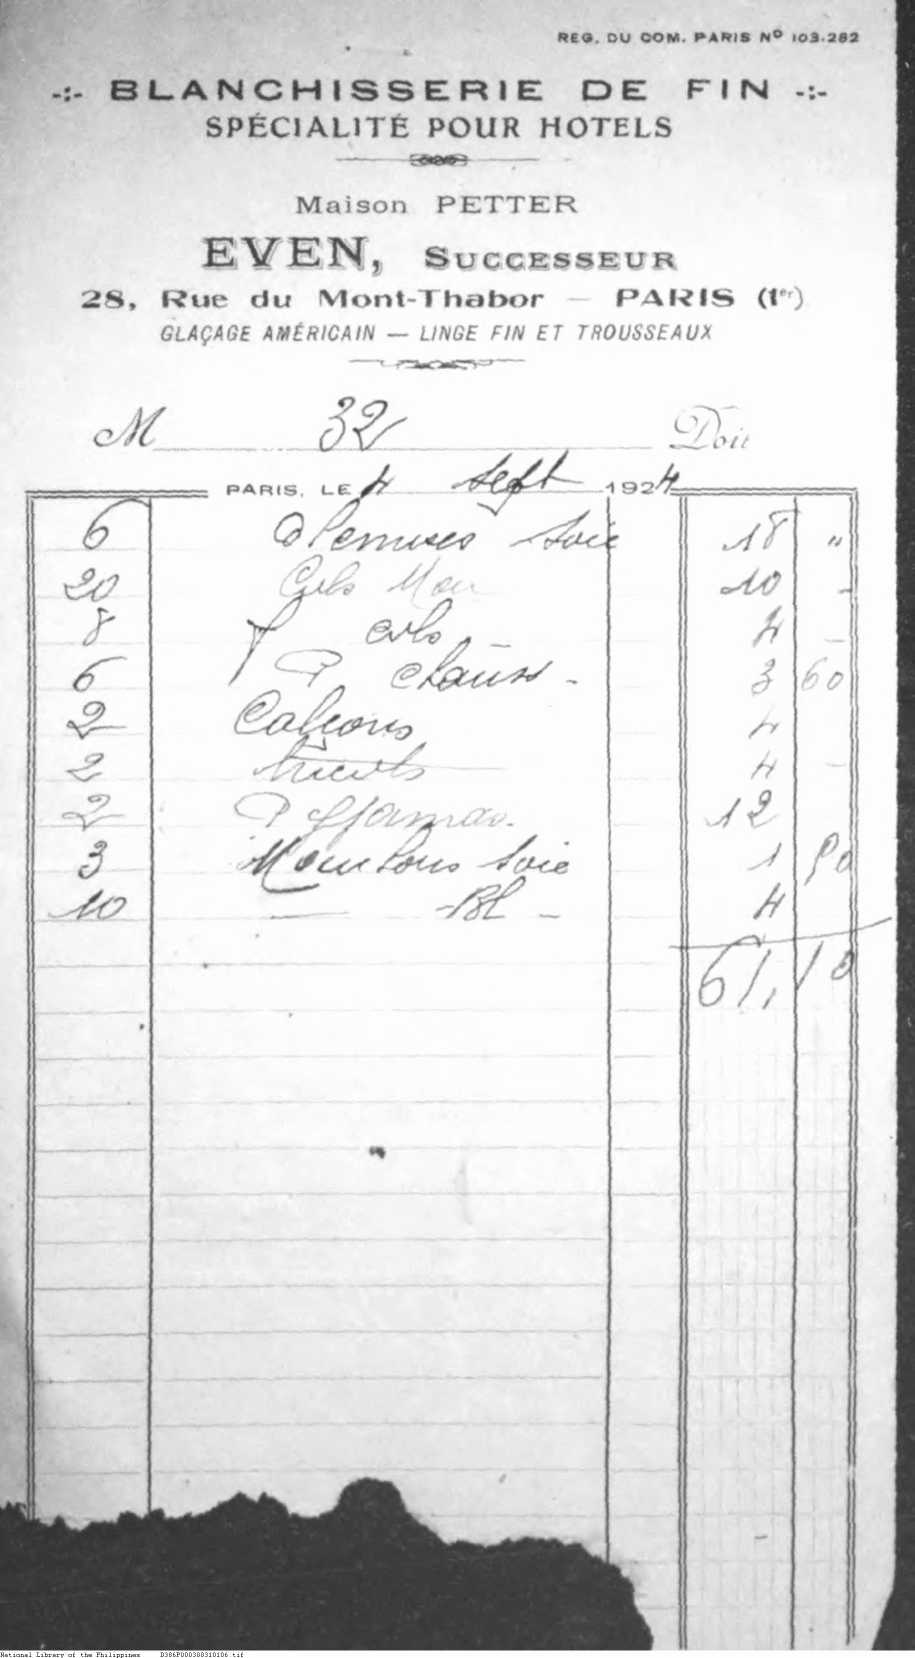 REG. DU COM. PARIS Nº 103.282
-:- BLANCHISSERIE DE FIN -:-
SPÉCIALITÉ POUR HOTELS
Maison PETTER
EVEN, SUCCESSEUR
28, Rue du Mont-Thabor — PARIS (1er)
GLAÇAGE AMÉRICAIN — LINGE FIN ET TROUSSEAUX
M 32 Doit
PARIS, LE 4 Sept 1924
6 Chemises Soie 18 "
20 Cols Mou 10 -
8 Cols 4 -
6 P chauss - 3 60
2 Caleçons 4
2 4 -
2 Pyjamas. 12
3 Mouchoirs Soie 1 50
10 — Bl - 4
61,10
National Library of the Philippines D386P000380310106.tif